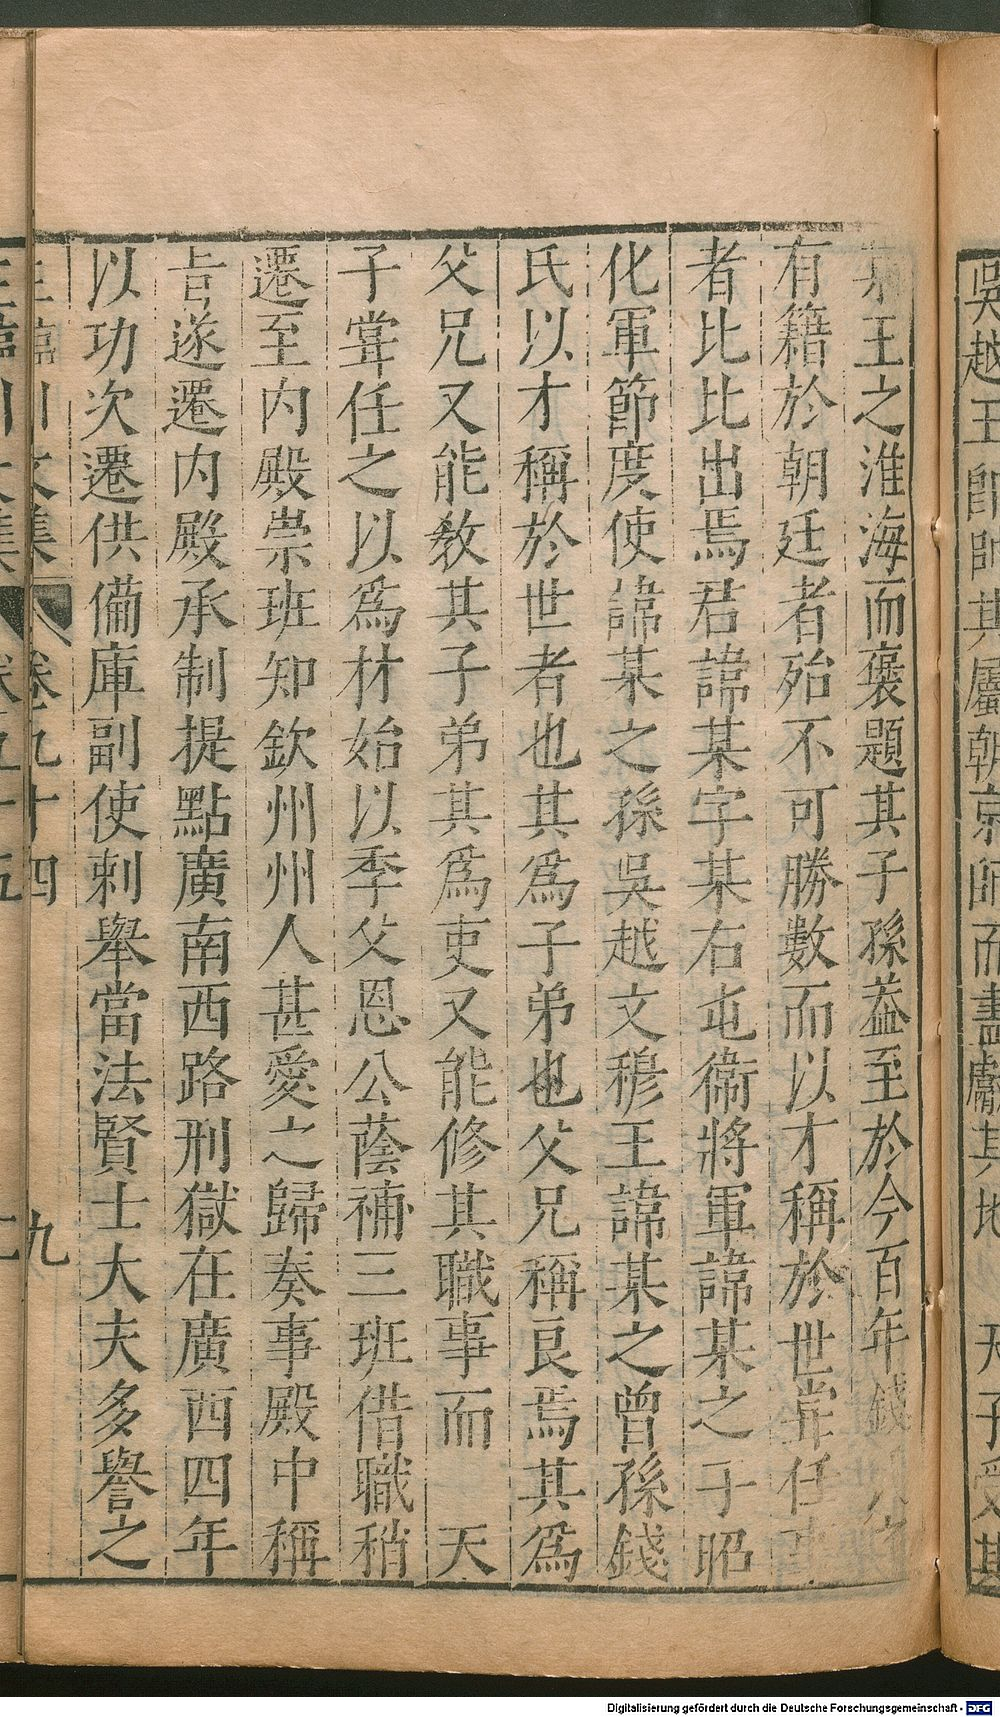 吳越王卽帥其屬朝京師而盡獻其地　天子受其
王之淮海而褒題其子孫葢至於今百年錢
有籍於朝廷者殆不可勝數而以才稱於世甞任
者比比出焉君諱某字某右屯衛將軍諱某之子昭
化軍節度使諱某之孫吳越文穆王諱某之曾孫錢
氏以才稱於世者也其爲子弟也父兄稱良焉其爲
父兄又能敎其子弟其爲吏又能修其職事而　天
子甞任之以爲材始以季父恩公蔭補三班借職稍
遷至内殿崇班知欽州州人甚愛之歸奏事殿中稱
旨遂遷内殿承制提點廣南西路刑獄在廣西四年
以功次遷供備庫副使刺舉當法賢士大夫多譽之
王臨川文集　卷九十四　九
Digitalisierung gefördert durch die Deutsche Forschungsgemeinschaft - DFG